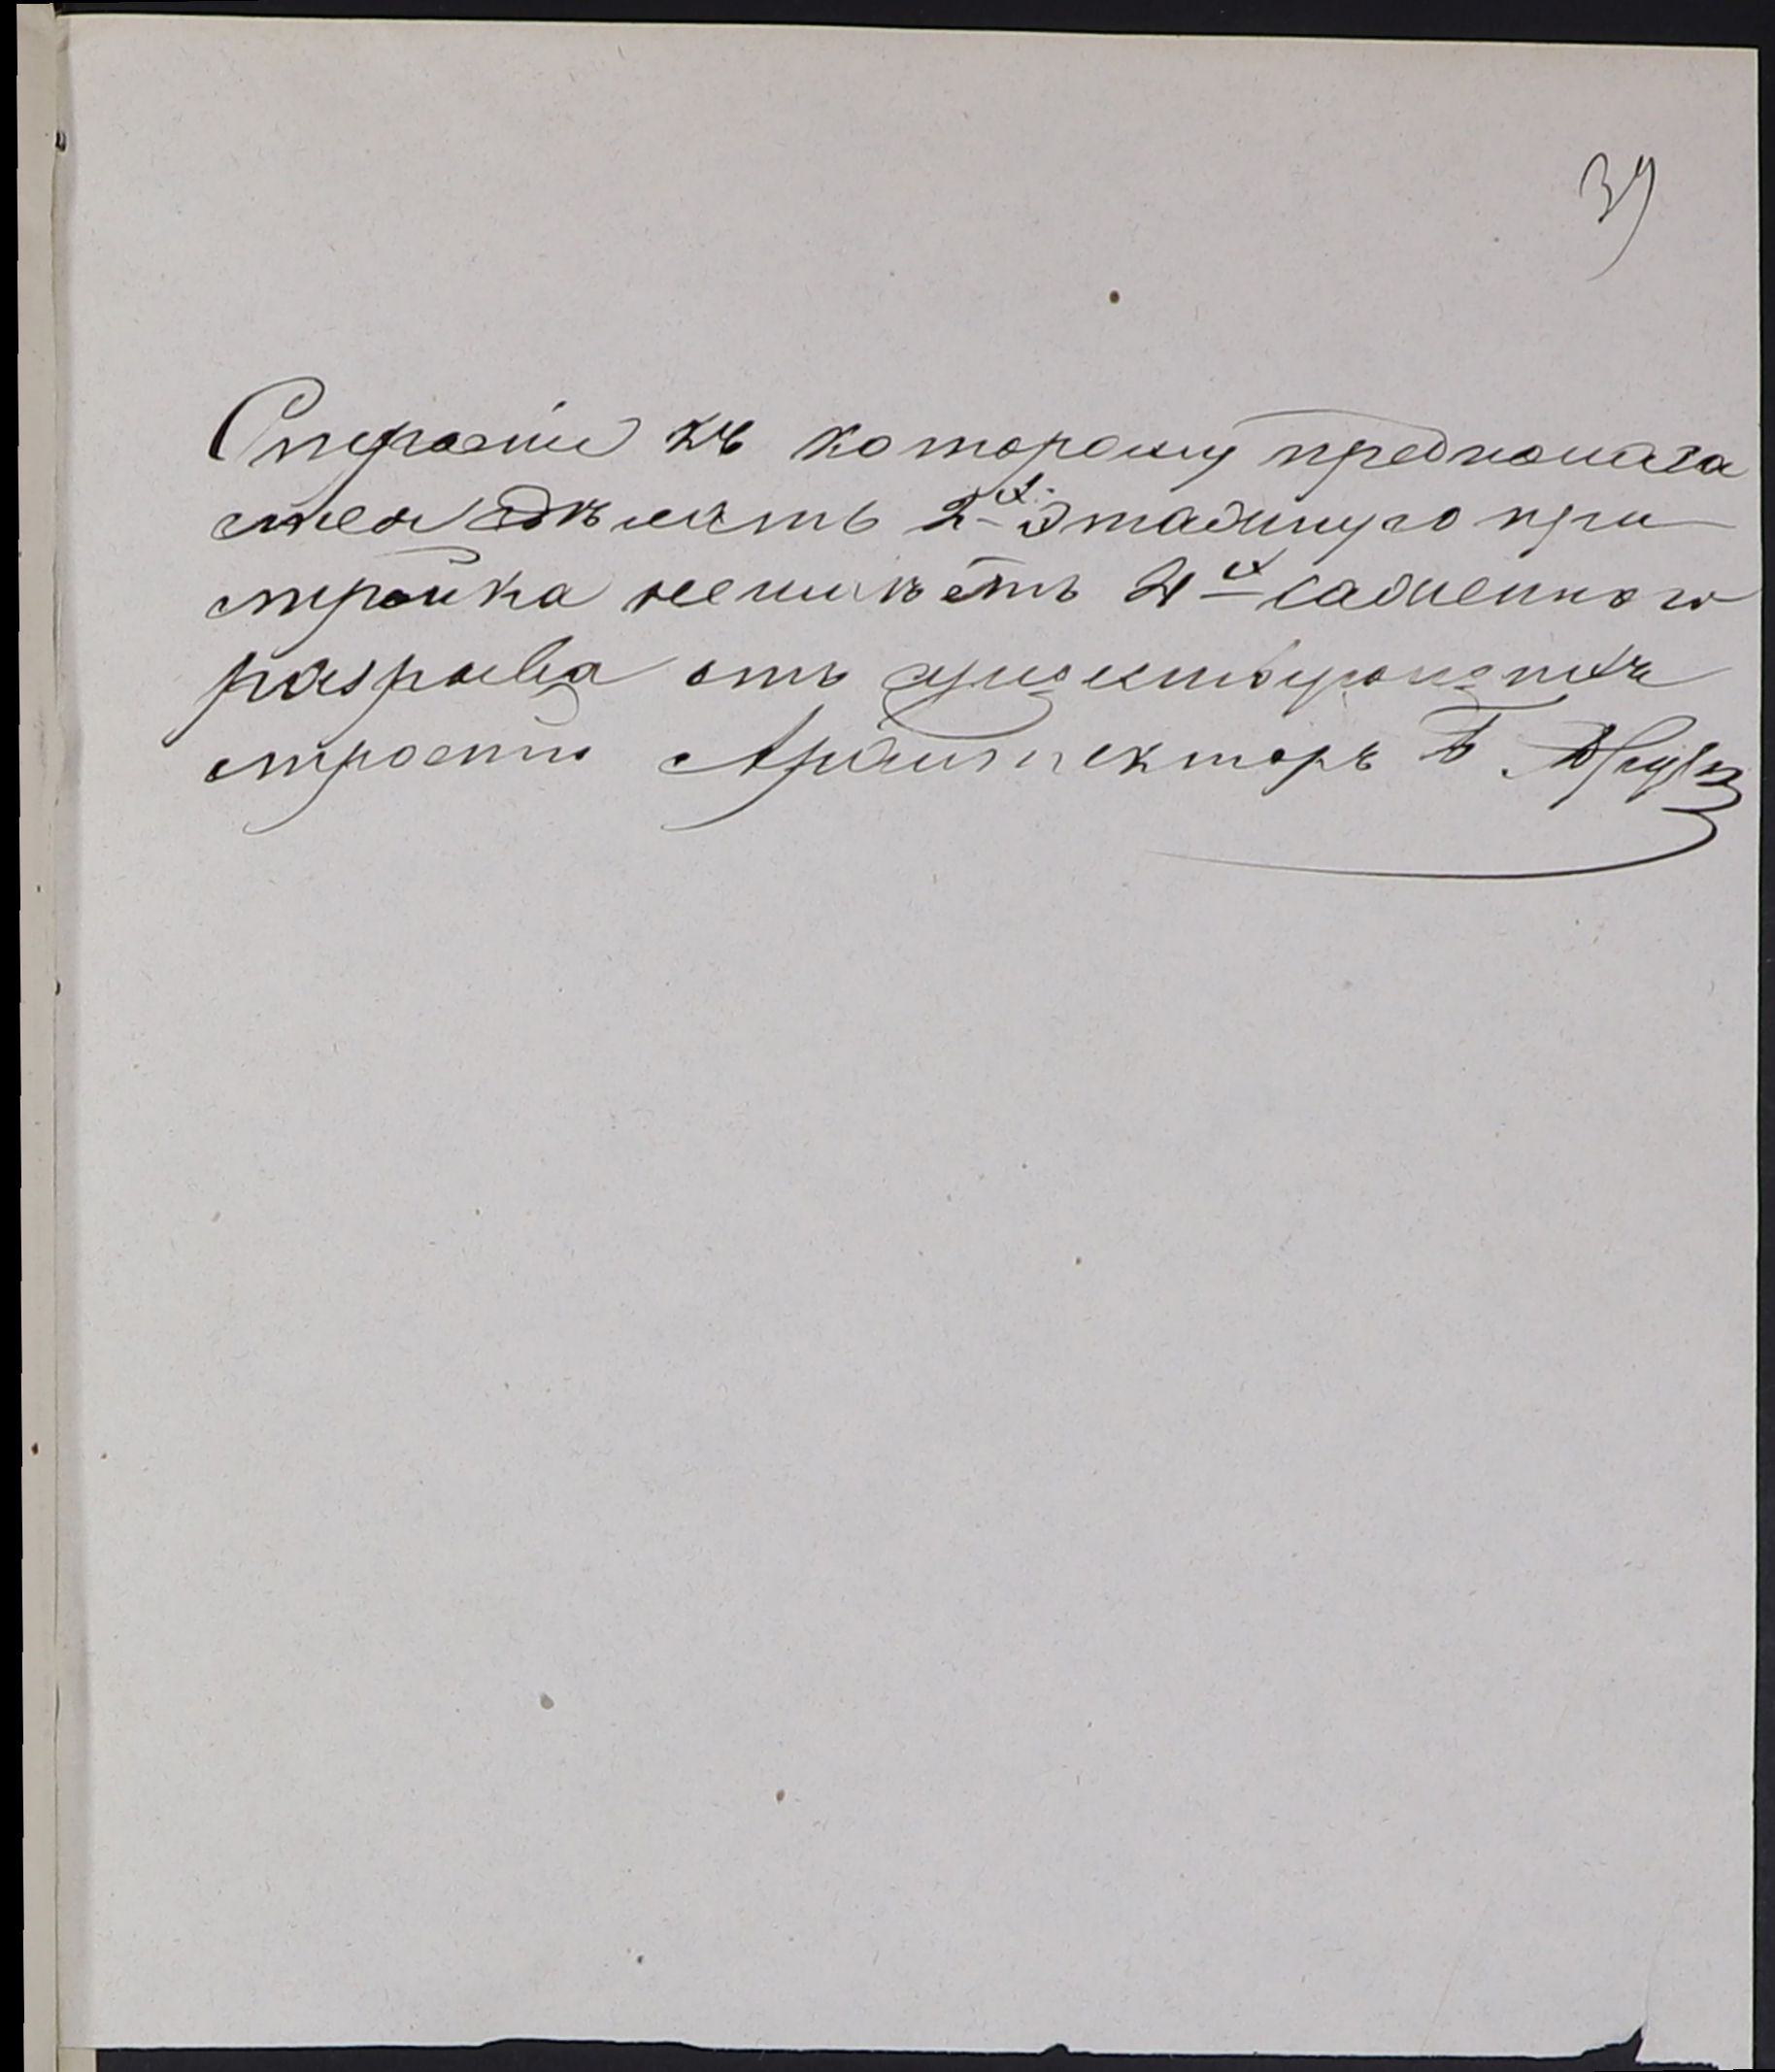 39
Строенiе къ которому предпалага
ется сдѣлать 2х этажную при
стройка неимѣетъ 4х саженного
разрыва отъ существующихъ
строенiй Архитекторъ